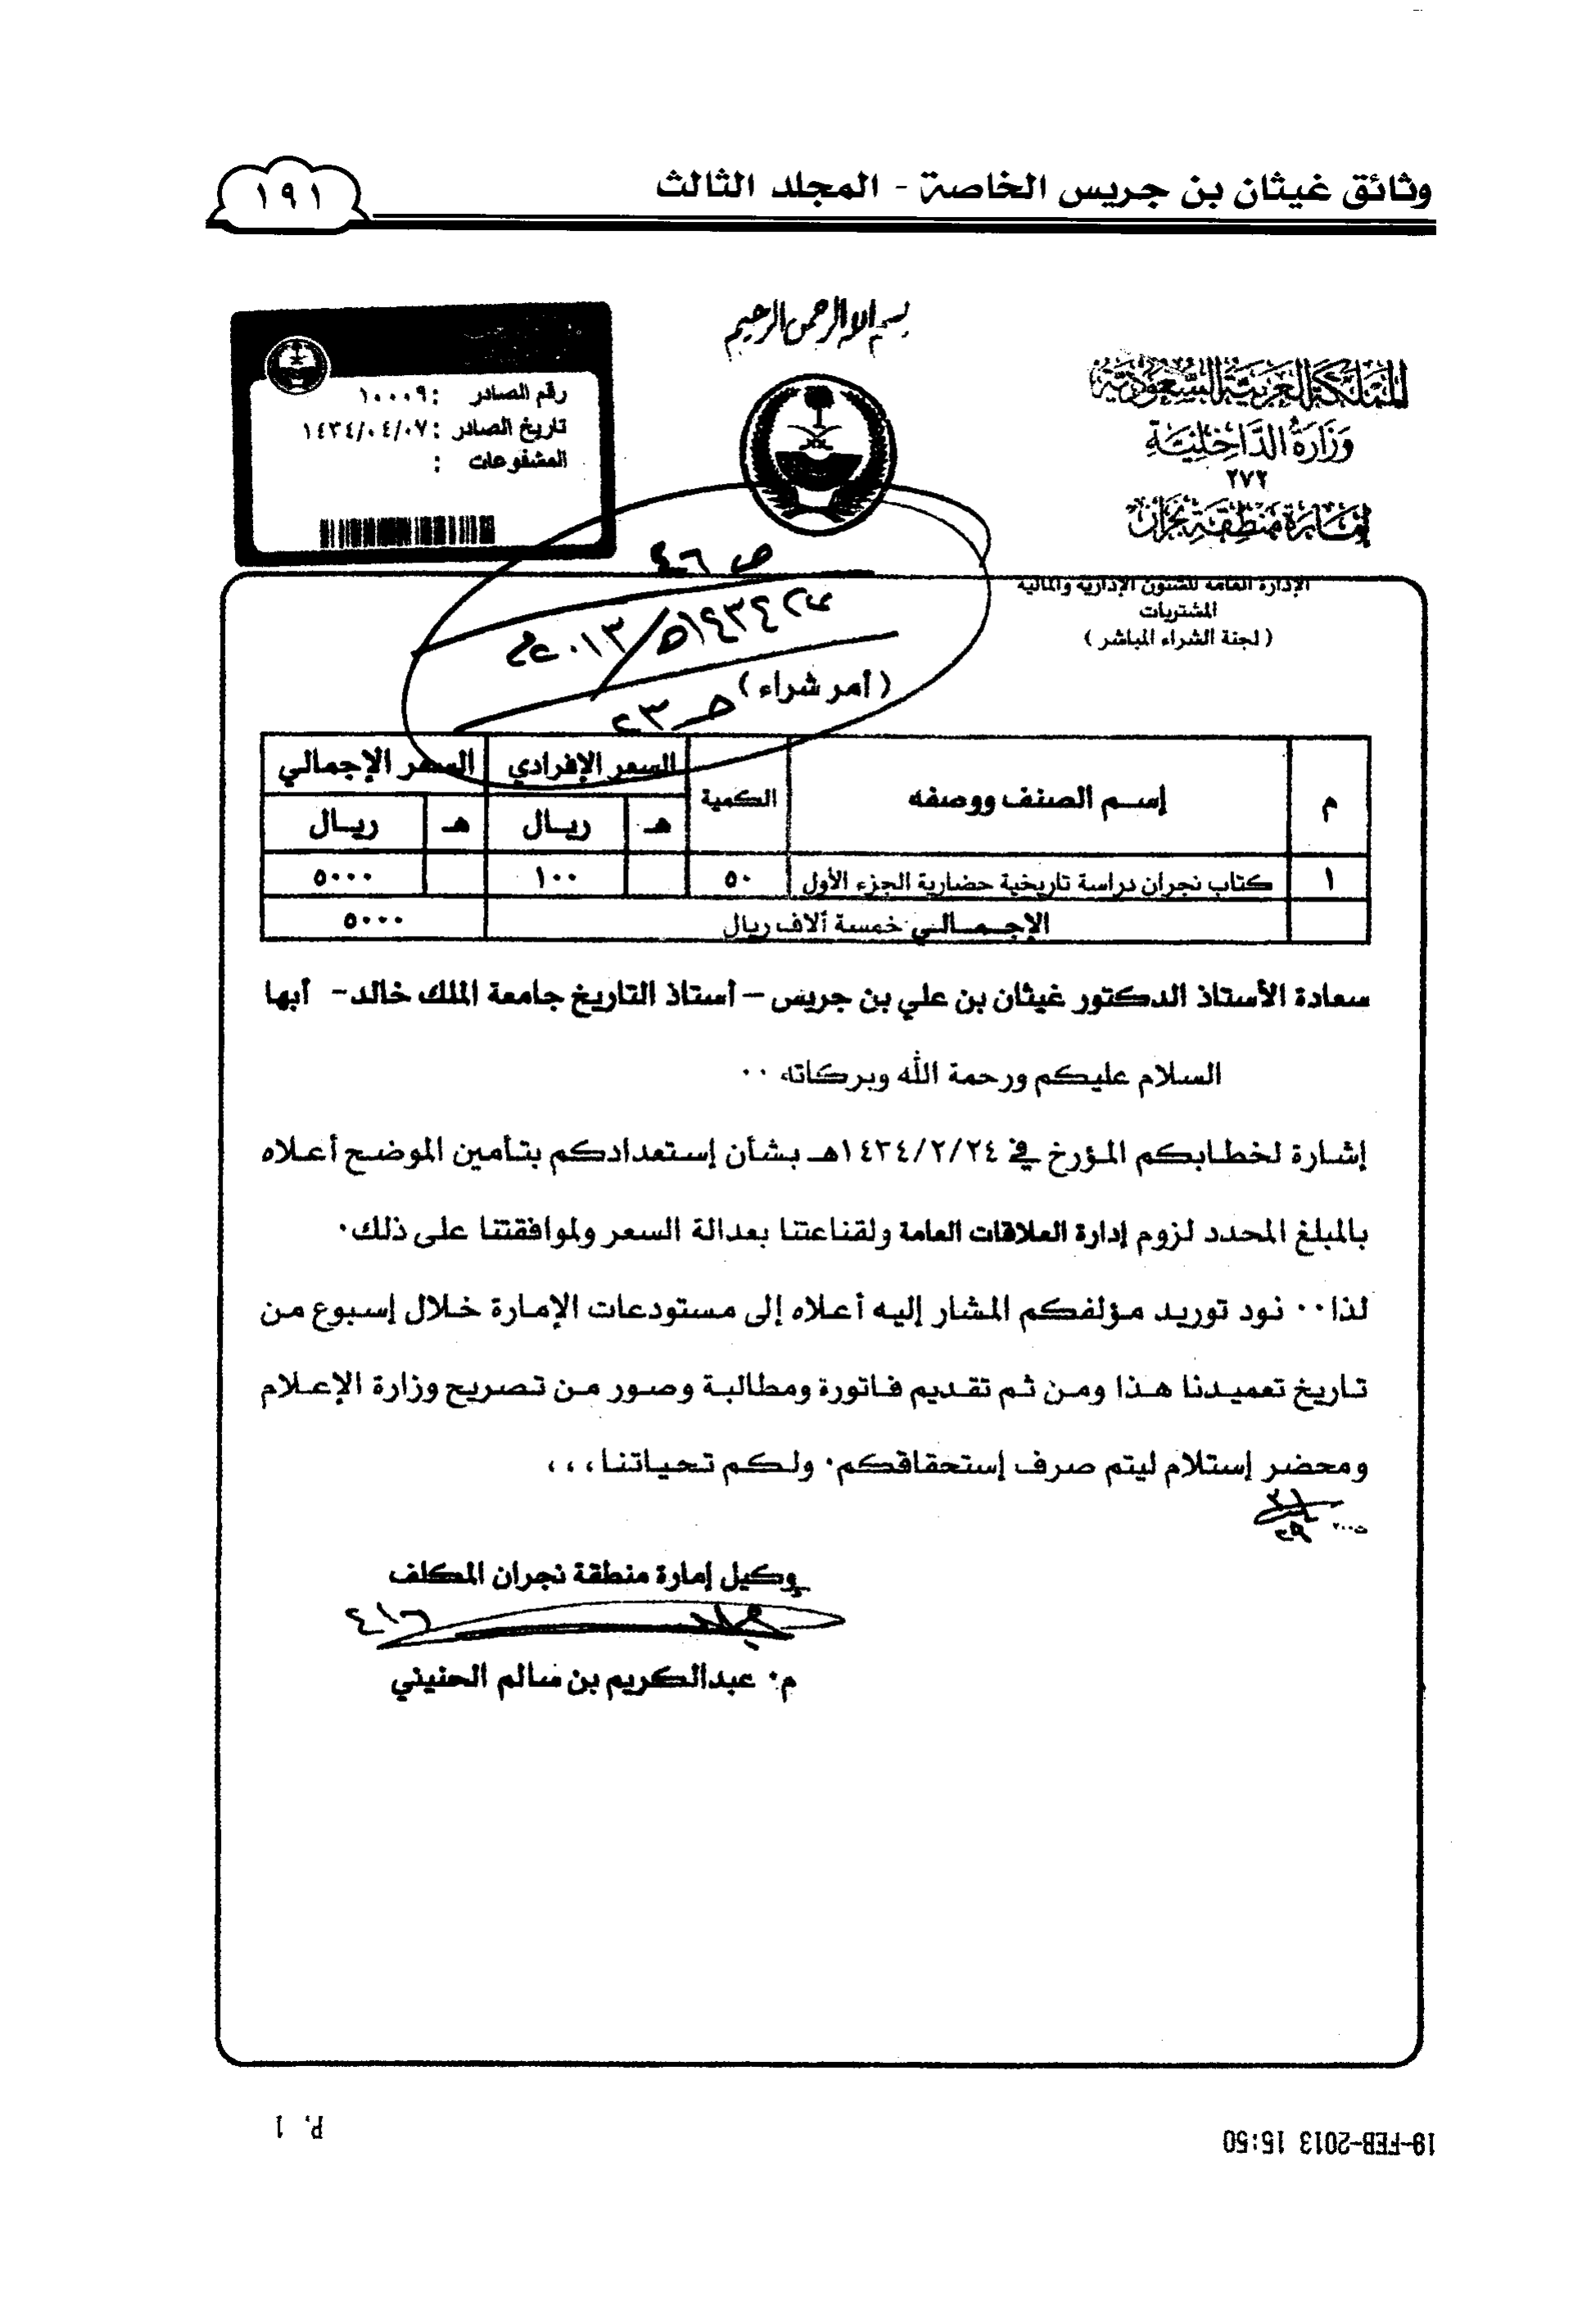 وثائق غيثان بن جريس الخاصة - المجلد الثالث
١٩١
بسم الله الرحمن الرحيم
المملكة العربية السعودية
وزارة الداخلية
٢٧٢
إمارة منطقة نجران
الإدارة العامة للشئون الإدارية والمالية
المشتريات
( لجنة الشراء المباشر )
رقم الصادر : ١٠٠٠٩
تاريخ الصادر : ١٤٣٤/٠٤/٠٧
المشفوعات :
ص ٤٦
١٤٣٤هـ/٢٠١٣م
( أمر شراء )
م إسم الصنف ووصفه الكمية السعر الإفرادي السعر الإجمالي
هـ ريال هـ ريال
١ كتاب نجران دراسة تاريخية حضارية الجزء الأول ٥٠ ١٠٠ ٥٠٠٠
الإجمالي خمسة آلاف ريال ٥٠٠٠
سعادة الأستاذ الدكتور غيثان بن علي بن جريس – أستاذ التاريخ جامعة الملك خالد - أبها
السلام عليكم ورحمة الله وبركاته ٠٠
إشارة لخطابكم المؤرخ في ١٤٣٤/٢/٢٤هـ بشأن إستعدادكم بتأمين الموضح أعلاه
بالمبلغ المحدد لزوم إدارة العلاقات العامة ولقناعتنا بعدالة السعر ولموافقتنا على ذلك٠
لذا٠٠ نود توريد مؤلفكم المشار إليه أعلاه إلى مستودعات الإمارة خلال إسبوع من
تاريخ تعميدنا هذا ومن ثم تقديم فاتورة ومطالبة وصور من تصريح وزارة الإعلام
ومحضر إستلام ليتم صرف إستحقاقكم٠ ولكم تحياتنا،،،
وكيل إمارة منطقة نجران المكلف
م٠ عبدالكريم بن سالم الحنيني
19-FEB-2013 15:50
P. 1